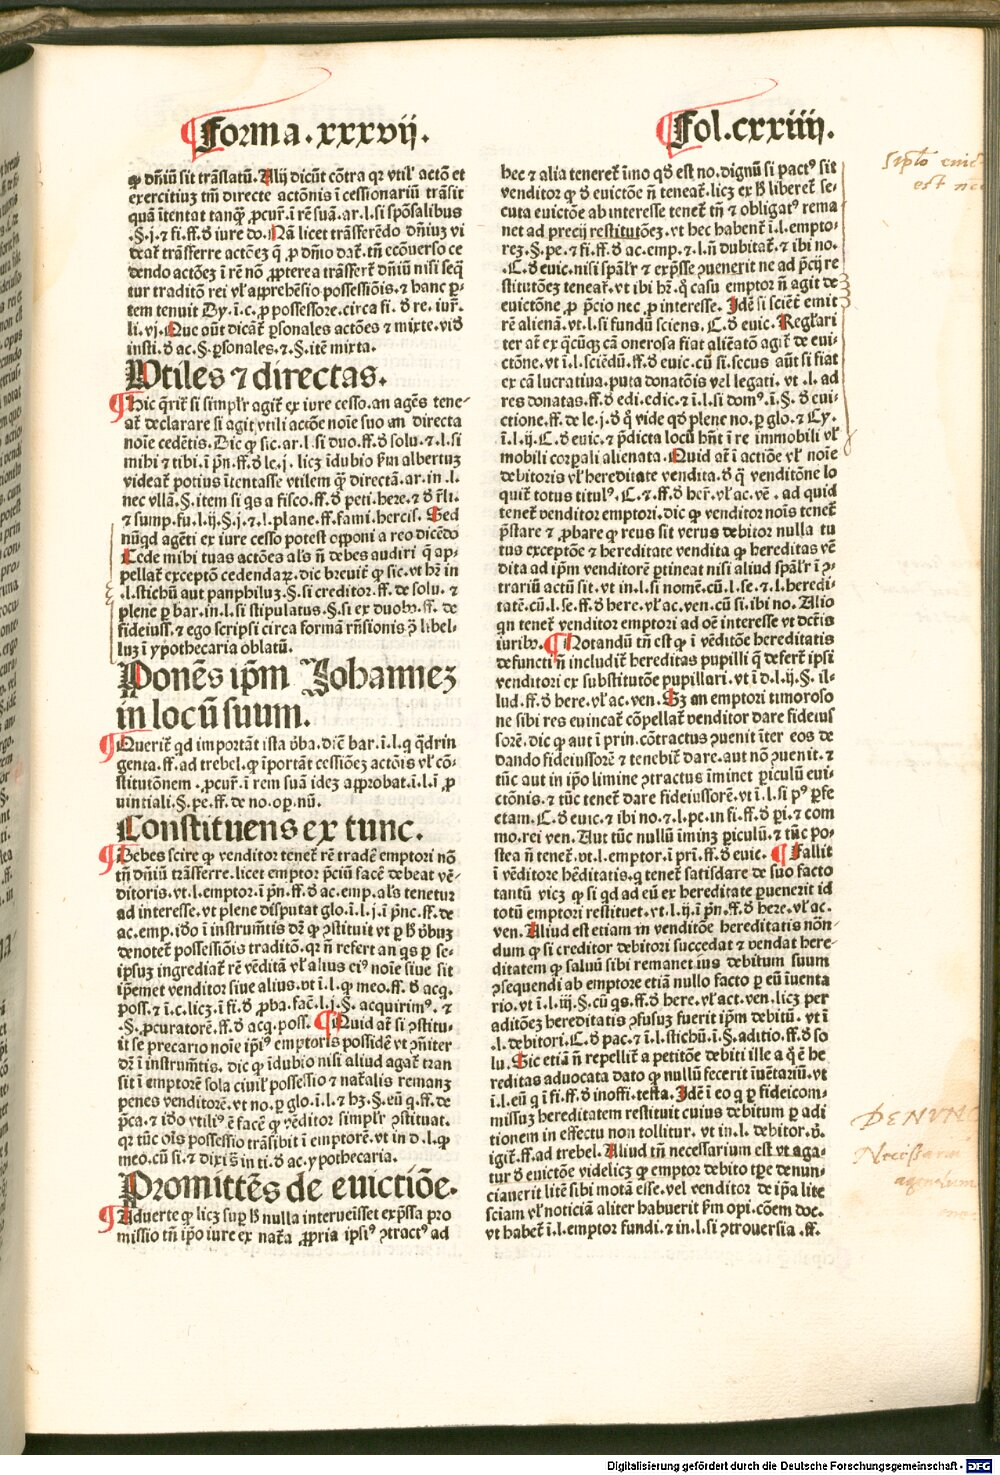 Forma.xxxvij.
Fol.cxxiiij.
ꝙ dñiũ sit trãslatũ. Alij dicũt cõtra qꝛ vtil' actõ et
exercitiuȝ tm̃ directe actõnis ĩ cessionariũ trãsit
quã ĩtentat tanqȝ ꝓcur̃.ĩ rẽ suã.ar.l.si spõsalibus
.§.j.⁊ fi.ff.ð iure do. Nã licet trãsferẽdo dñiuȝ vi
deat̃ trãsferre actõeȝ q̃ ꝓ dñio dat̃.tñ ecõuerso ce
dendo actõeȝ ĩ rẽ nõ ꝓpterea trãsfert̃ dñiũ nisi seq̃
tur traditõ rei vl' apprehẽsio possessiõis.⁊ hanc ꝑ-
tem tenuit Dy.ĩ.c.ꝓ possessore.circa fi.ð re.iur̃.
li.vj. Que aũt dicãt̃ ꝑsonales actões ⁊ mixte.við
insti.ð ac.§.ꝑsonales.⁊.§.itẽ mixta.
Vtiles ⁊ directas.
Hic q̃rit̃ si simplr̃ agit̃ ex iure cesso.an agẽs tene-
at̃ declarare si agit vtili actõe noĩe suo an directa
noĩe cedẽtis. Dic ꝙ sic.ar.l.si duo.ff.ð solu.⁊.l.si
mihi ⁊ tibi.ĩ pñ.ff.ð le.j. licȝ ĩdubio ẜm albertuȝ
videat̃ potius ĩtentasse vtilem q̃ directã.ar.in .l.
nec vllã.§.item si qs a fisco.ff.ð peti.here.⁊ ð r̃li.
⁊ sump.fu.l.ij.§.j.⁊.l.plane.ff.fami.hercis. Sed
nũqd agẽti ex iure cesso potest opponi a reo dicẽdo
Cede mihi tuas actões als ñ debes audiri q̃ ap-
pellat̃ exceptõ cedendaꝝ.dic breuit̃ ꝙ sic.vt hr̃ in
.l.stichũ aut panphiluȝ.§.si creditor.ff.de solu.⁊
plene ꝑ bar.in.l.si stipulatus.§.si ex duobꝫ.ff.de
fideiuss.⁊ ego scripsi circa formã rñsionis ꝓ libel-
luȝ ĩ ypothecaria oblatũ.
Ponẽs ip̃m Johannez
in locũ suum.
Querit̃ qd importãt ista ṽba.dic̃ bar.ĩ.l.q q̃drin
genta.ff.ad trebel.q ĩportãt cessiõeȝ actõis vl' cõ-
stitutõnem .ꝓcur̃.ĩ rem suã idez approbat.ĩ.l.ĩ ꝓ
uintiali.§.pe.ff.de no.oꝑ.nũ.
Constituens ex tunc.
Debes scire ꝙ venditor tenet̃ rẽ tradẽ emptori nõ
tñ dñiũ trãsferre.licet emptor p̃ciũ facẽ debeat vẽ-
ditoris.vt.l.emptor.ĩ pñ.ff.ð ac.emp.als tenetur
ad interesse.vt plene disputat glo.ĩ.l.j.ĩ prĩc.ff.de
ac.emp.iðo ĩ instrum̃tis dr̃ ꝙ ꝯstituit vt ꝑ ħ ṽbuȝ
denotet̃ possessiõis traditõ.qꝛ ñ refert an qs ꝑ se-
ipsuȝ ingrediat̃ rẽ vẽditã vl' alius eiꝰ noĩe siue sit
ip̃emet venditor siue alius.vt ĩ.l.ꝙ meo.ff.ð acq.
poss.⁊ ĩ.c.licȝ.ĩ fi.ð ꝓba.facĩ.l.j.§. acquirimꝰ.⁊
.§.ꝓcuratorẽ.ff.ð acq.poss. Quid at̃ si ꝯstitu-
it se precario noĩe ip̃iꝰ emptoris possidẽ vt ꝯñiter
dr̃ ĩ instrum̃tis. dic ꝙ ĩdubio nisi aliud agat̃ tran
sit ĩ emptorẽ sola ciuil' possessio ⁊ nat̃alis remanȝ
penes venditorẽ.vt no.ꝑ glo.ĩ.l.⁊ hȝ.§.eũ q.ff.de
p̃ca.⁊ iðo vtiliꝰ ẽ facẽ ꝙ vẽditor simplr̃ ꝯstituat.
qꝛ tũc oĩs possessio trãsibit ĩ emptorẽ.vt in d.l.ꝙ
meo.cũ si.⁊ dixi s̃ in ti.ð ac.ypothecaria.
Promittẽs de euictiõe.
Aduerte ꝙ licȝ suꝑ ħ nulla interueisset exp̃ssa pro
missio tñ ip̃o iure ex nat̃a ꝓpria ipsiꝰ ꝯtractꝰ ad
hec ⁊ alia teneret̃ ĩmo qð est no.dignũ si pactꝰ sit
venditor ꝙ ð euictõe ñ teneat̃.licȝ ex ħ liberet̃ se-
cuta euictõe ab interesse tenet̃ tñ ⁊ obligatꝰ rema
net ad precij restitutõeȝ.vt hec habent̃ ĩ.l.empto-
reȝ.§.pe.⁊ fi.ff.ð ac.emp.⁊.l.ñ dubitat̃.⁊ ibi no.
.C.ð euic.nisi spãlr̃ ⁊ exp̃sse ꝯuenerit ne ad p̃cij re
stitutõeȝ teneat̃.vt ibi hr̃.q̃ casu emptor ñ agit de
euictõne ꝓ p̃cio nec ꝓ interesse. Idẽ si sciẽt̃ emit
rẽ alienã.vt.l.si fundũ sciens.C.ð euic. Regl'ari
ter at̃ ex q̃cũqȝ cã onerosa fiat aliẽatõ agit̃ de eui-
ctõne.vt ĩ.l.sciẽdũ.ff.ð euic.cũ si.secus aũt si fiat
ex cã lucratiua.puta donatõis vel legati. vt .l. ad
res donatas.ff.ð edi.edic.⁊ ĩ.l.si domꝰ.ĩ.§. ð eui-
ctione.ff.de le.j.ð q̃ vide qð plene no.ꝑ glo.⁊ Cy.
ĩ.l.ij.C.ð euic.⁊ p̃dicta locũ hñt ĩ re immobili vl'
mobili corꝑali alienata. Quid at̃ ĩ actiõe vl' noĩe
debitoris vl' hereditate vendita.ð q̃ venditõne lo
quit̃ totus titulꝰ. C.⁊.ff.ð her̃.vl' ac.vẽ . ad quid
tenet̃ venditor emptori.dic ꝙ venditor noĩs tenet̃
p̃stare ⁊ ꝓbare ꝙ reus sit verus debitor nulla tu
tus exceptõe ⁊ hereditate vendita ꝙ hereditas vẽ
dita ad ip̃m venditorẽ ꝑtineat nisi aliud spãlr̃ ĩ ꝯ-
trariũ actũ sit.vt in.l.si nomẽ.cũ.l.se.⁊.l.heredi-
tatẽ.cũ.l.se.ff.ð here.vl' ac.ven.cũ si.ibi no. Alio
qn tenet̃ venditor emptori ad oẽ interesse vt dct̃is
iuribꝫ. Notandũ tñ est ꝙ ĩ vẽditõe hereditatis
defuncti ñ includit̃ hereditas pupilli q̃ defert̃ ipsi
venditori ex substitutõe pupillari.vt ĩ d.l.ij.§. il-
lud.ff.ð here.vl' ac.ven. Sȝ an emptori timoroso
ne sibi res euincat̃ cõpellat̃ venditor dare fideius
sorẽ.dic ꝙ aut ĩ prin.cõtractus ꝯuenit ĩter eos de
dando fideiussorẽ ⁊ tenebit̃ dare.aut nõ ꝯuenit.⁊
tũc aut in ip̃o limine ꝯtractus ĩminet ꝑiculũ eui-
ctõnis.⁊ tũc tenet̃ dare fideiussorẽ.vt ĩ.l.si pꝰ ꝑfe
ctam.C.ð euic.⁊ ibi no.⁊.l.pe.in fi.ff.ð ꝑi.⁊ com
mo.rei ven. Aut tũc nullũ ĩminȝ ꝑiculũ.⁊ tũc po-
stea ñ tenet̃.vt.l.emptor.ĩ pri.ff.ð euic. Fallit
ĩ vẽditore hẽditatis.q tenet̃ satisdare de suo facto
tantũ vicȝ ꝙ si qd ad eũ ex hereditate ꝑuenerit id
totũ emptori restituet.vt.l.ij.ĩ pñ.ff.ð here.vl' ac.
ven. Aliud est etiam in venditõe hereditatis nõn-
dum ꝙ si creditor debitori succedat ⁊ vendat here-
ditatem ꝙ saluũ sibi remanet ius debitum suum
ꝯsequendi ab emptore etiã nullo facto ꝑ eũ iuenta
rio.vt ĩ.l.iij.§.cũ qs.ff.ð here.vl' act.ven.licȝ per
aditõeȝ hereditatis ꝯfusuȝ fuerit ip̃m debitũ. vt ĩ
.l.debitori.C.ð pac.⁊ ĩ.l.stichũ.ĩ.§.aditio.ff.ð so
lu. Sic etiã ñ repellit̃ a petitõe debiti ille a q̃ ẽ he
reditas aduocata dato ꝙ nullũ fecerit ĩuẽtariũ.vt
ĩ.l.eũ q ĩ fi.ff.ð inoffi.testa. Idẽ ĩ eo q ꝑ fideicom-
missuȝ hereditatem restituit cuius debitum ꝑ adi
tionem in effectu non tollitur. vt in.l. debitor.ꝑ.
igit̃.ff.ad trebel. Aliud tñ necessarium est vt aga-
tur ð euictõe videlicȝ ꝙ emptor debito tꝑe denun-
ciauerit litẽ sibi motã esse.vel venditor de ip̃a lite
sciam vl' noticiã aliter habuerit ẜm opi.cõem doc.
vt habet̃ ĩ.l.emptor fundi.⁊ in.l.si ꝯtrouersia .ff.
est
DENVNC
Necessari
agendum
Digitalisierung gefördert durch die Deutsche Forschungsgemeinschaft - DFG